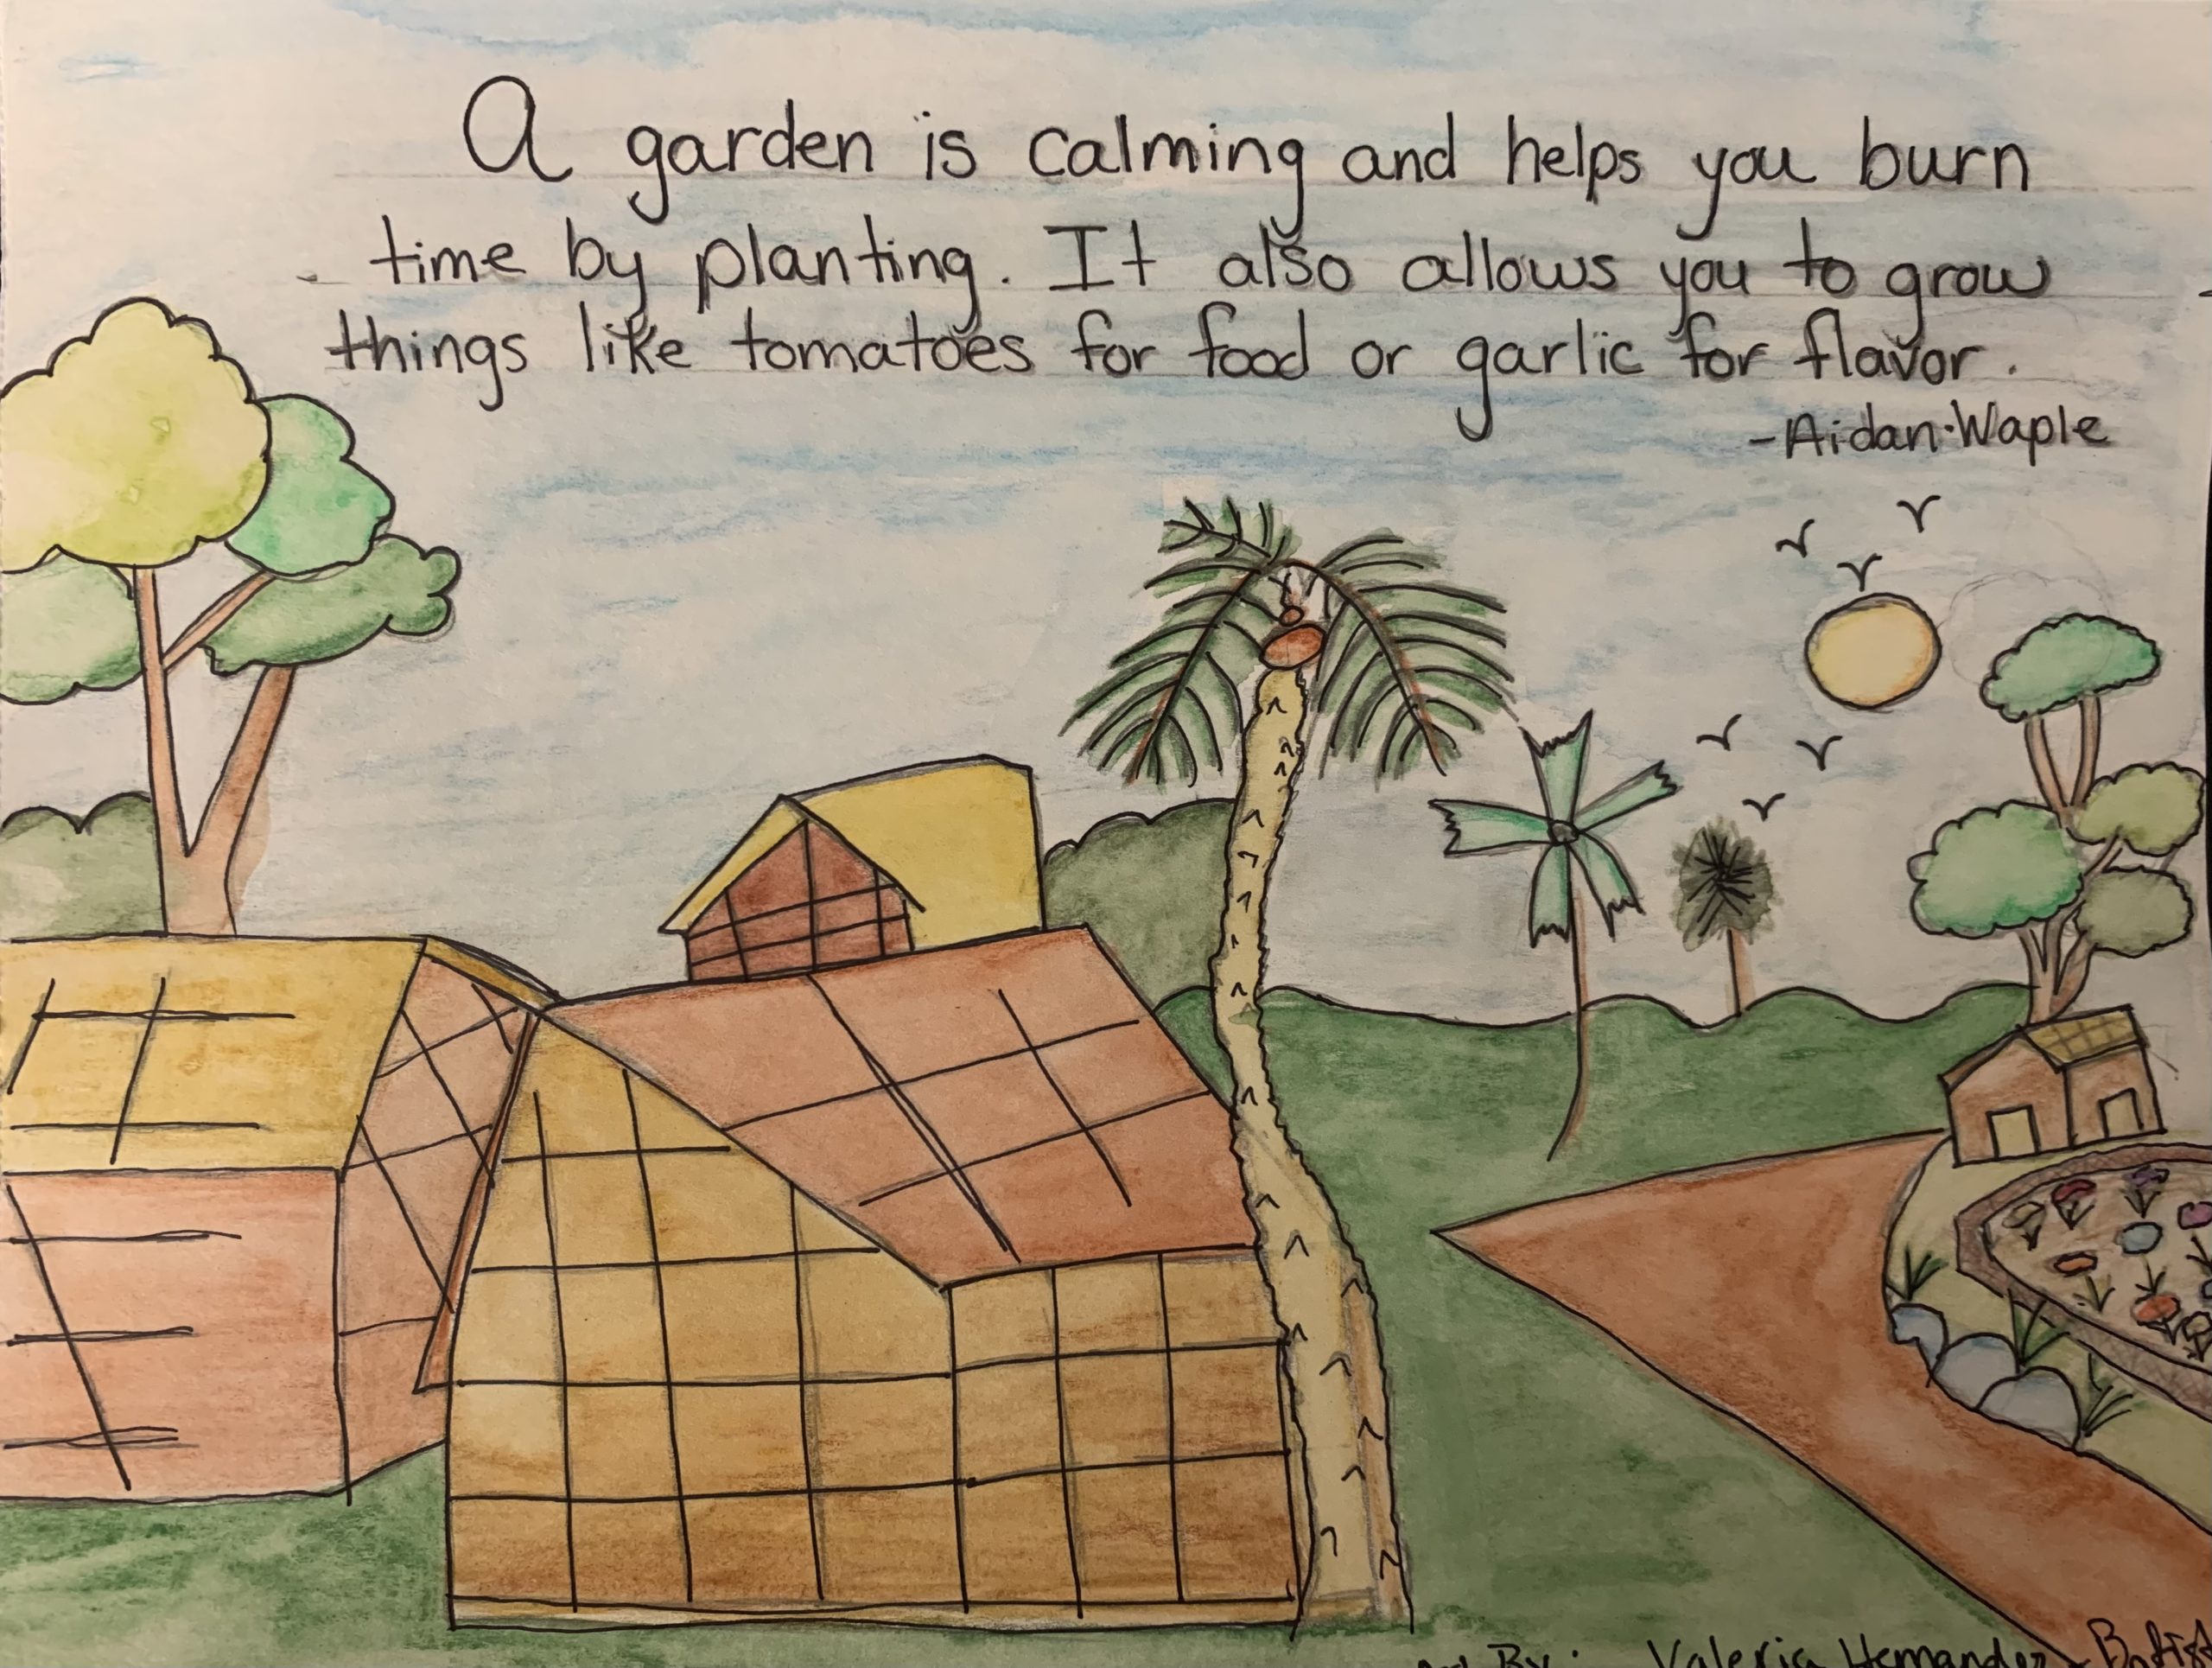 A garden is calming and helps you burn
time by planting. It also allows you to grow
things like tomatoes for food or garlic for flavor.
-Aidan Waple
By: Valeria Hernandez